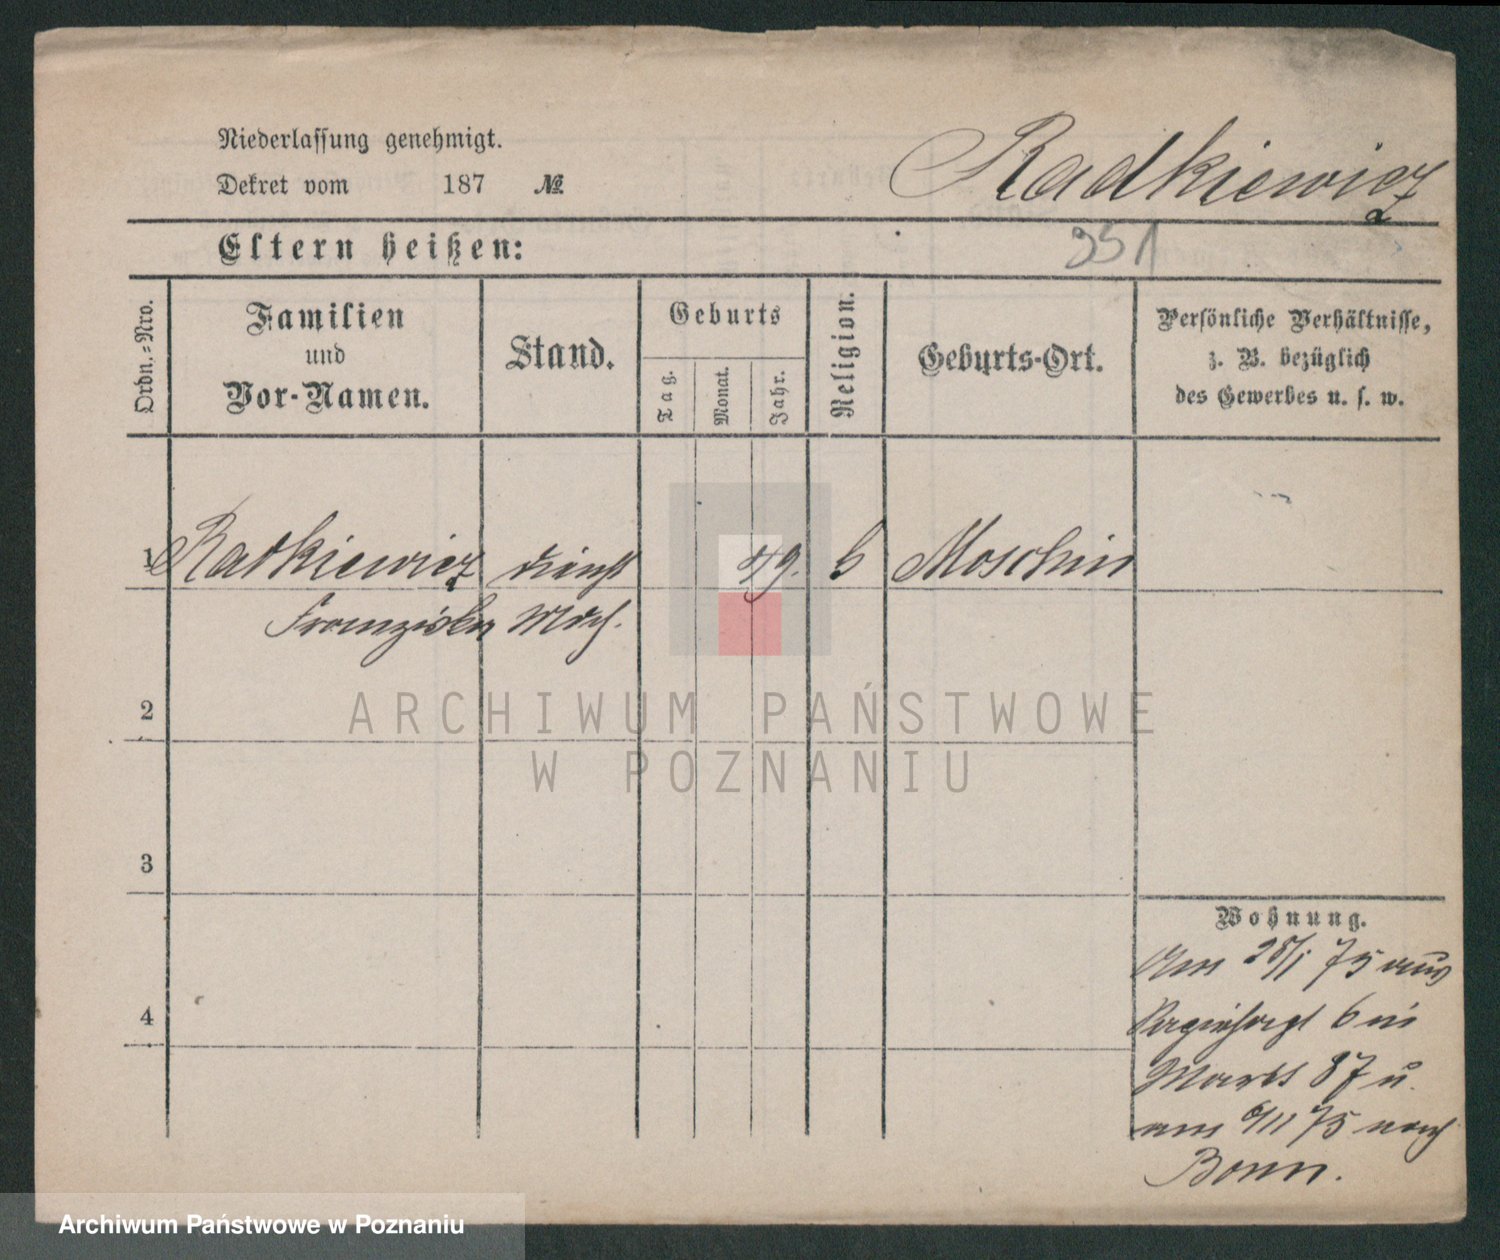 Niederlassung genehmigt.
Dekret vom 187 №
Radkiewicz
Eltern heißen:
951
Ordn.-Nro.
Familien
und
Vor-Namen.
Stand.
Geburts
Tag.
Monat.
Jahr.
Religion.
Geburts-Ort.
Persönliche Verhältnisse,
z. B. bezüglich
des Gewerbes u. s. w.
1 Radkiewicz Dienst 49. k Moschin
Franziska Mdch.
2
3
4
Wohnung.
Am 28/1 75 aus
6 in
Markt 87 u.
am 6/11 75 nach
Bonn.
ARCHIWUM PAŃSTWOWE
W POZNANIU
Archiwum Państwowe w Poznaniu